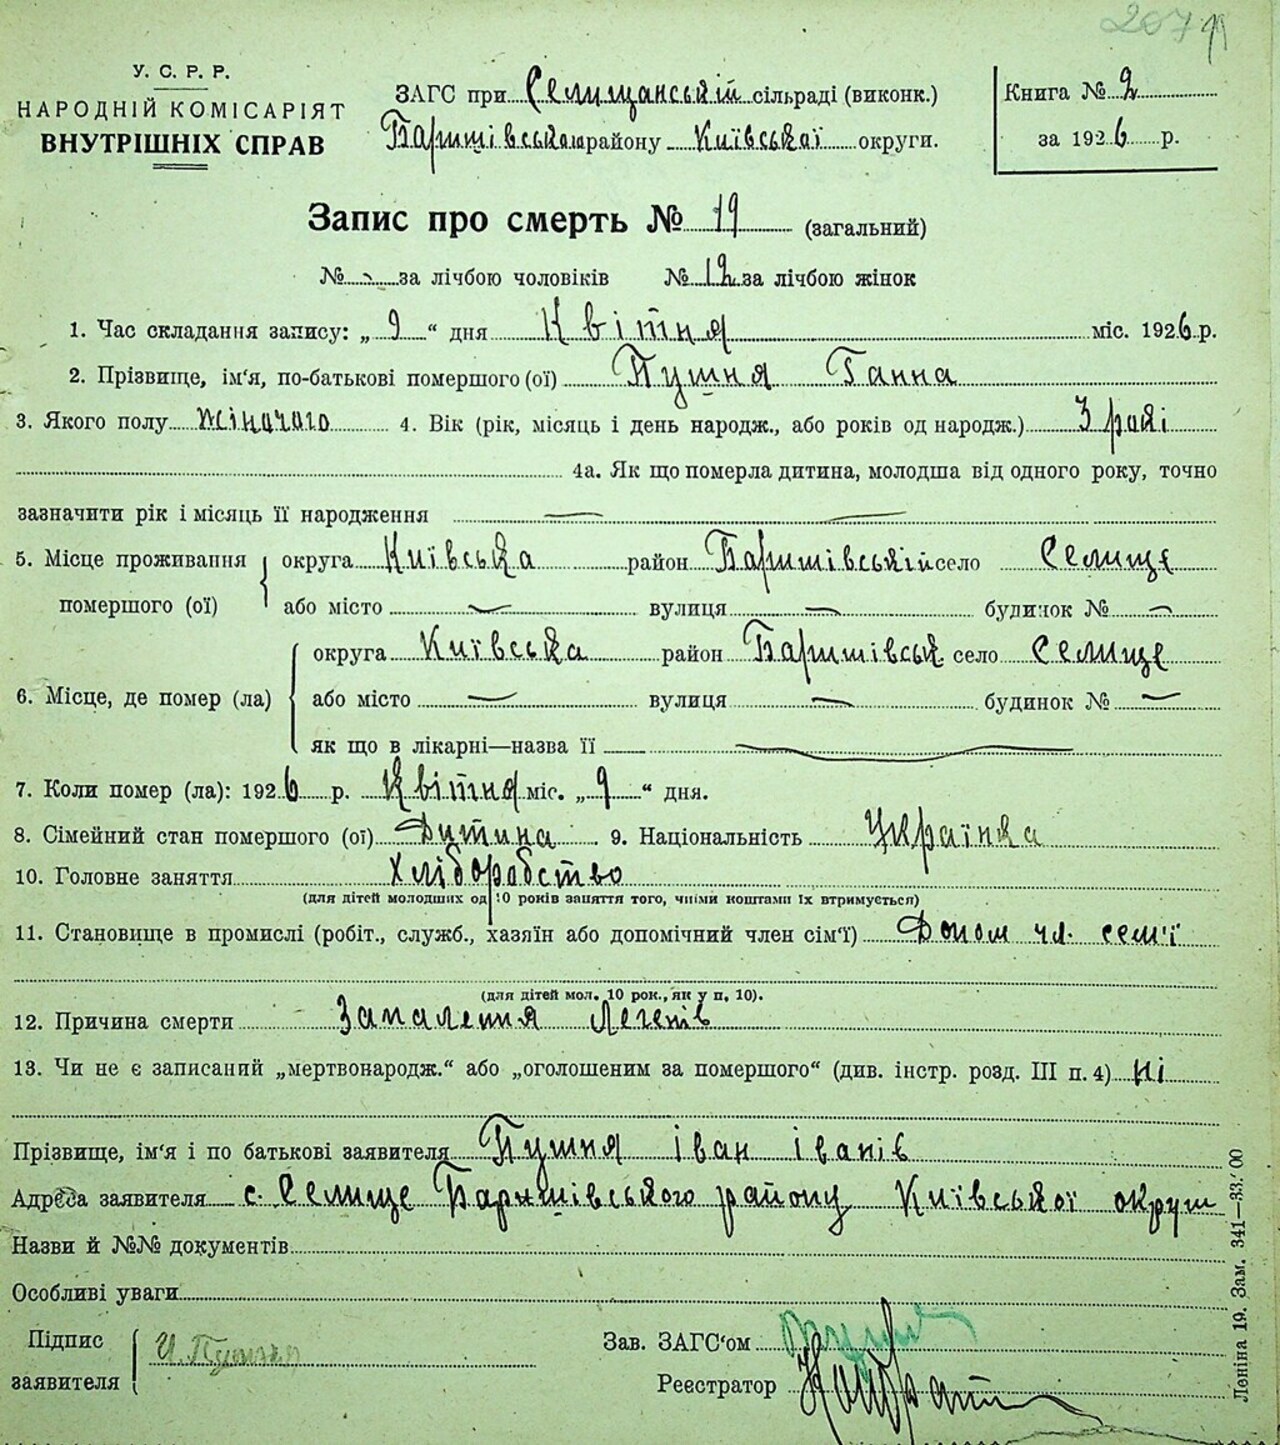 207
У. С. Р. Р.
НАРОДНІЙ КОМІСАРІЯТ
ВНУТРІШНІХ СПРАВ
ЗАГС при Селищанській сільраді (виконк.)
Баришівськ району Київської округи.
Книга № 2
за 1926 р.
Запис про смерть № 19 (загальний)
№ - за лічбою чоловіків № 12 за лічбою жінок
1. Час складання запису: „ 9 “ дня Квітня міс. 1926 р.
2. Прізвище, ім'я, по-батькові помершого (ої) Пушня Ганна
3. Якого полу жіночого 4. Вік (рік, місяць і день народж., або років од народж.) 3 рокі
4а. Як що померла дитина, молодша від одного року, точно
зазначити рік і місяць її народження —
5. Місце проживання помершого (ої) округа Київська район Баришівський село Селище
або місто — вулиця — будинок № —
6. Місце, де помер (ла) округа Київська район Баришівськ. село Селище
або місто — вулиця — будинок № —
як що в лікарні—назва її —
7. Коли помер (ла): 1926 р. Квітня міс. „ 9 “ дня.
8. Сімейний стан помершого (ої) Дитина 9. Національність Українка
10. Головне заняття Хліборобство
(для дітей молодших од 10 років заняття того, чиїми коштами їх втримується)
11. Становище в промислі (робіт., служб., хазяїн або допомічний член сім'ї) Допом чл. сем'ї
(для дітей мол. 10 рок., як у п. 10).
12. Причина смерти Запалення Легенів
13. Чи не є записаний „мертвонародж.“ або „оголошеним за помершого“ (див. інстр. розд. III п. 4) ні
Прізвище, ім'я і по батькові заявителя Пушня іван іванів
Адреса заявителя с. Селище Баришівського району Київської округи
Назви й №№ документів
Особливі уваги
Підпис заявителя И. Пушня
Зав. ЗАГС'ом
Реєстратор
Леніна 19. Зам. 341—33.000